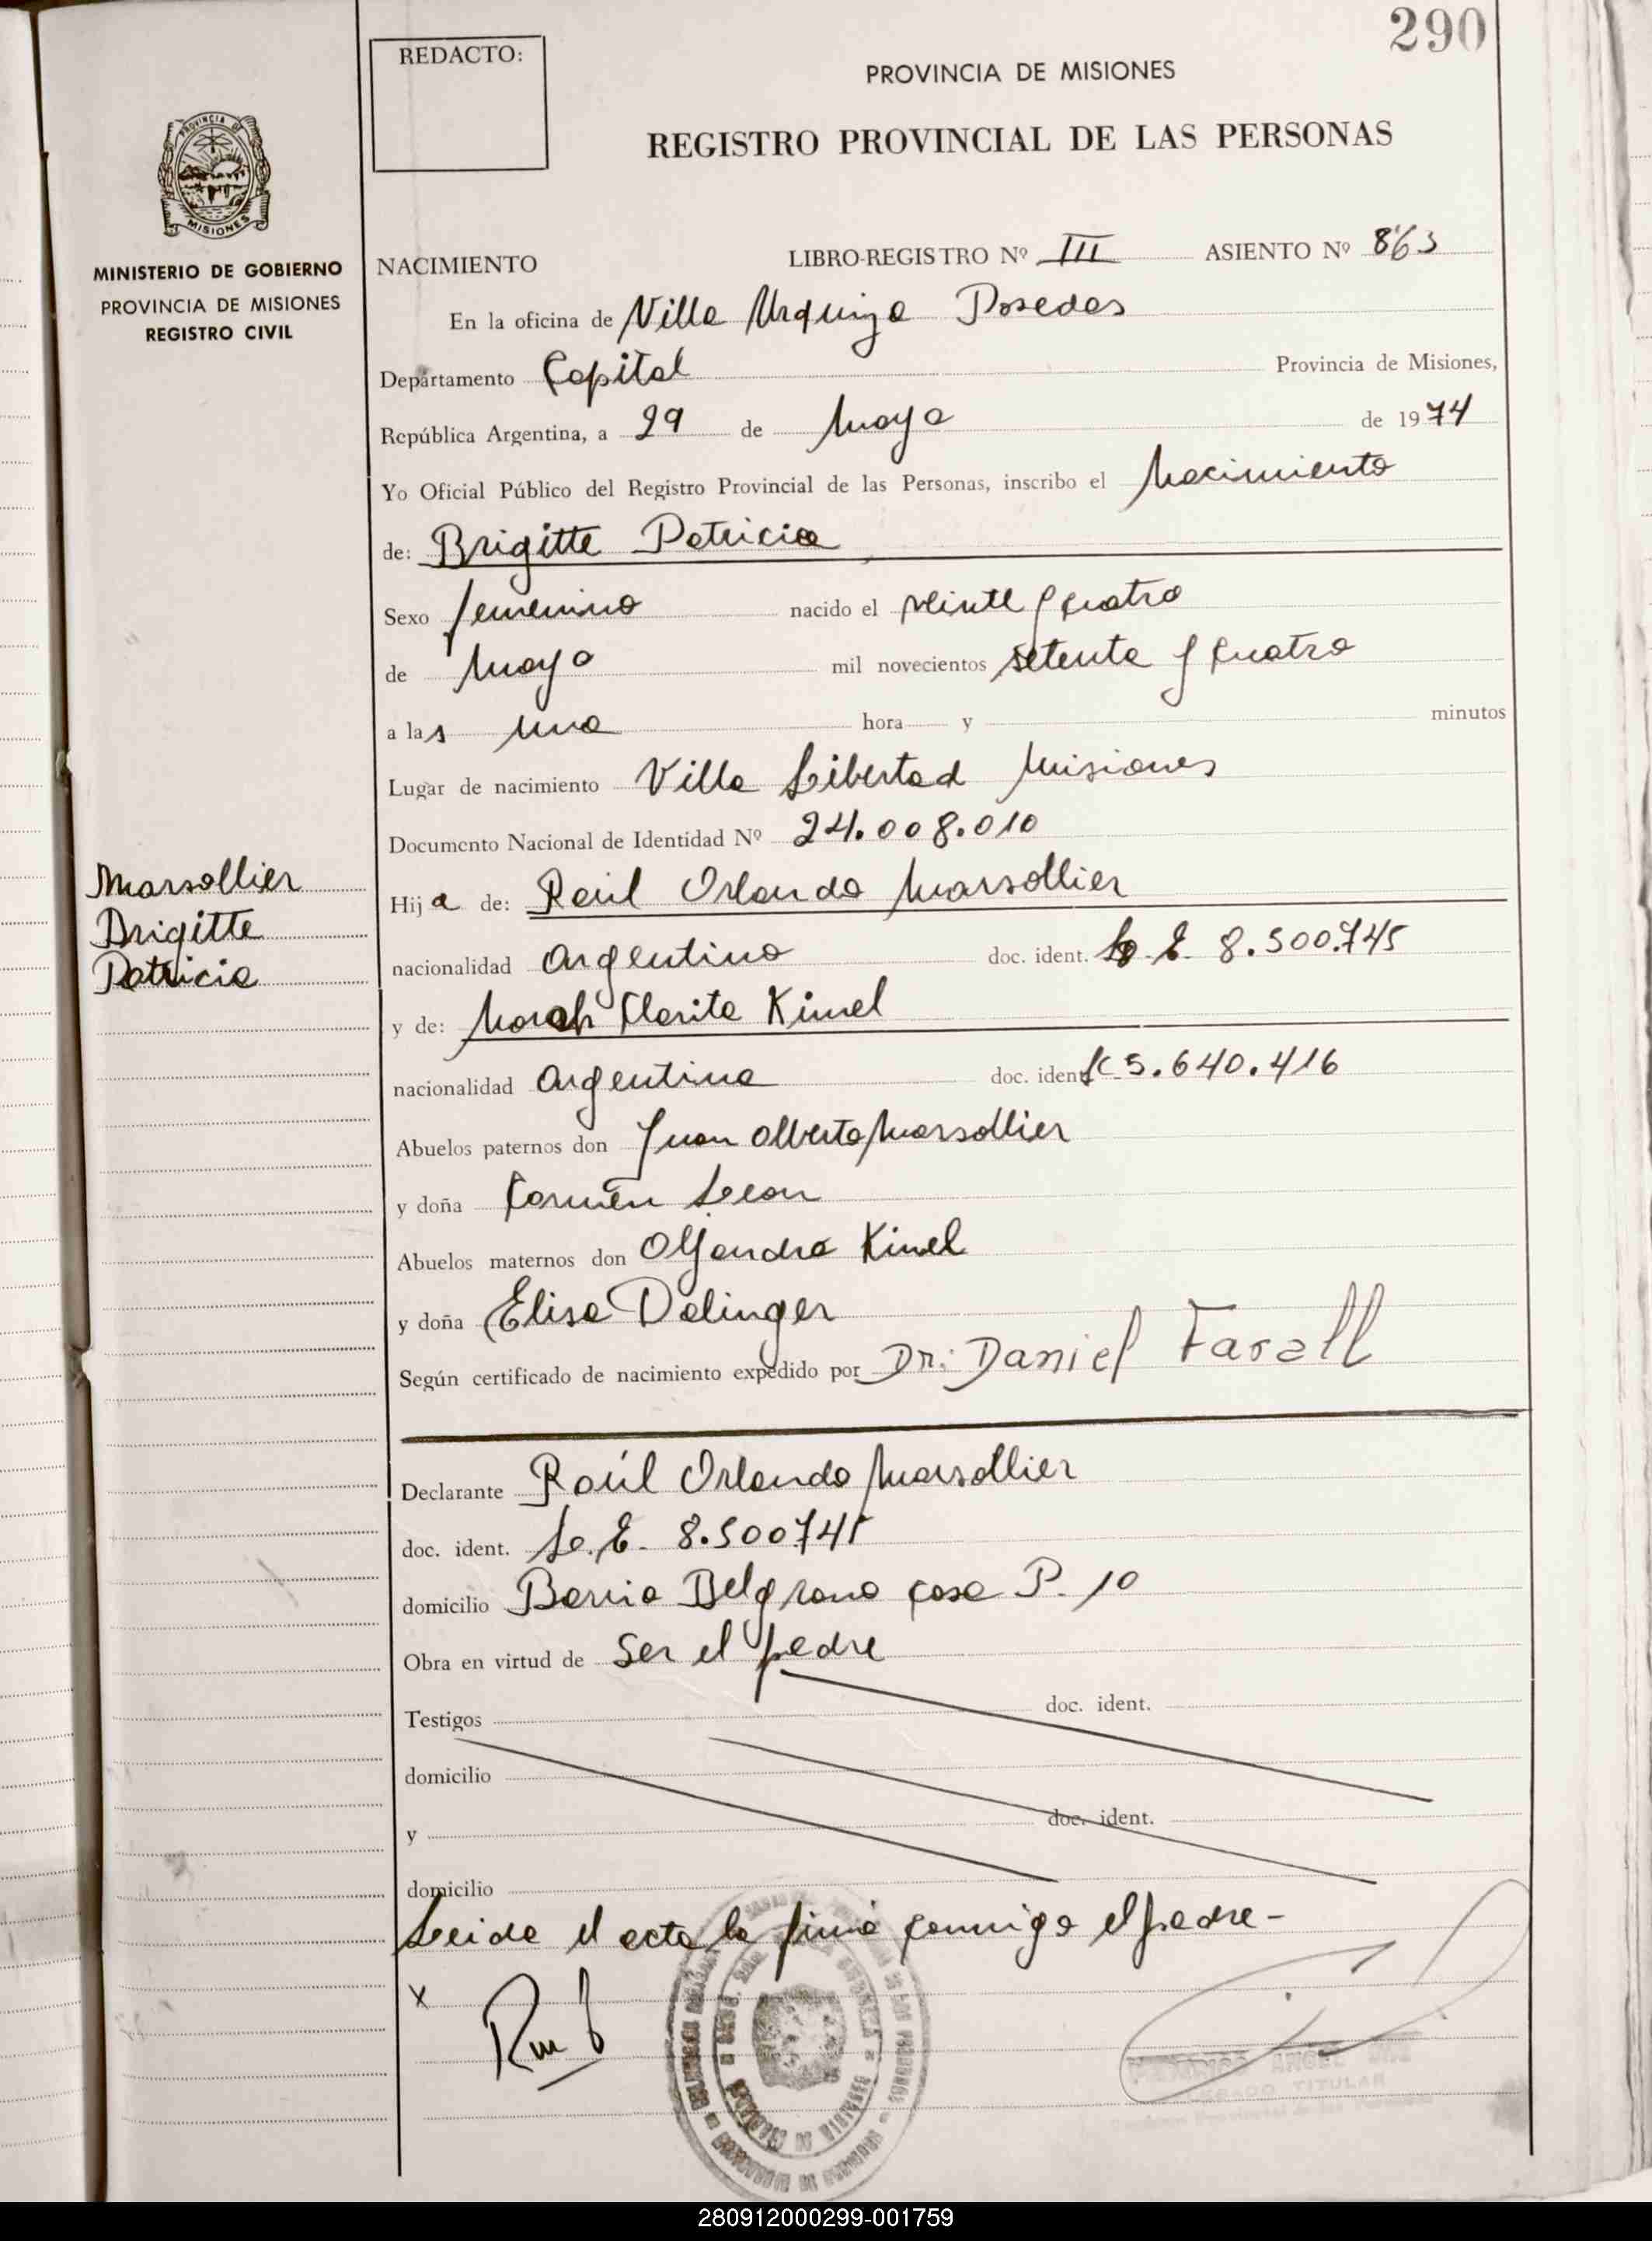 290
REDACTO:
PROVINCIA DE MISIONES
REGISTRO PROVINCIAL DE LAS PERSONAS
PROVINCIA DE
MISIONES
MINISTERIO DE GOBIERNO
PROVINCIA DE MISIONES
REGISTRO CIVIL
NACIMIENTO LIBRO-REGISTRO Nº III ASIENTO Nº 863
En la oficina de Villa Urquiza Posadas
Departamento Capital Provincia de Misiones,
República Argentina, a 29 de Mayo de 1974
Yo Oficial Público del Registro Provincial de las Personas, inscribo el Nacimiento
de: Brigitte Patricia
Sexo femenino nacido el veinte y cuatro
de Mayo mil novecientos setenta y cuatro
a las una hora y minutos
Lugar de nacimiento Villa Libertad Misiones
Documento Nacional de Identidad Nº 24.008.010
Marsollier
Brigitte
Patricia
Hija de: Raúl Orlando Marsollier
nacionalidad argentino doc. ident. L. E. 8.500.745
y de: Clarita Kimel
nacionalidad argentina doc. ident. 5.640.416
Abuelos paternos don Juan Alberto Marsollier
y doña Carmen Leon
Abuelos maternos don Alejandro Kimel
y doña Elisa Dalinger
Según certificado de nacimiento expedido por Dr: Daniel
Declarante Raúl Orlando Marsollier
doc. ident. L. E. 8.500.745
domicilio Barrio Belgrano casa P. 10
Obra en virtud de ser el padre
Testigos doc. ident.
domicilio
y doc. ident.
domicilio
Leida el acta la firmó conmigo el padre-
x
TITULAR
280912000299-001759